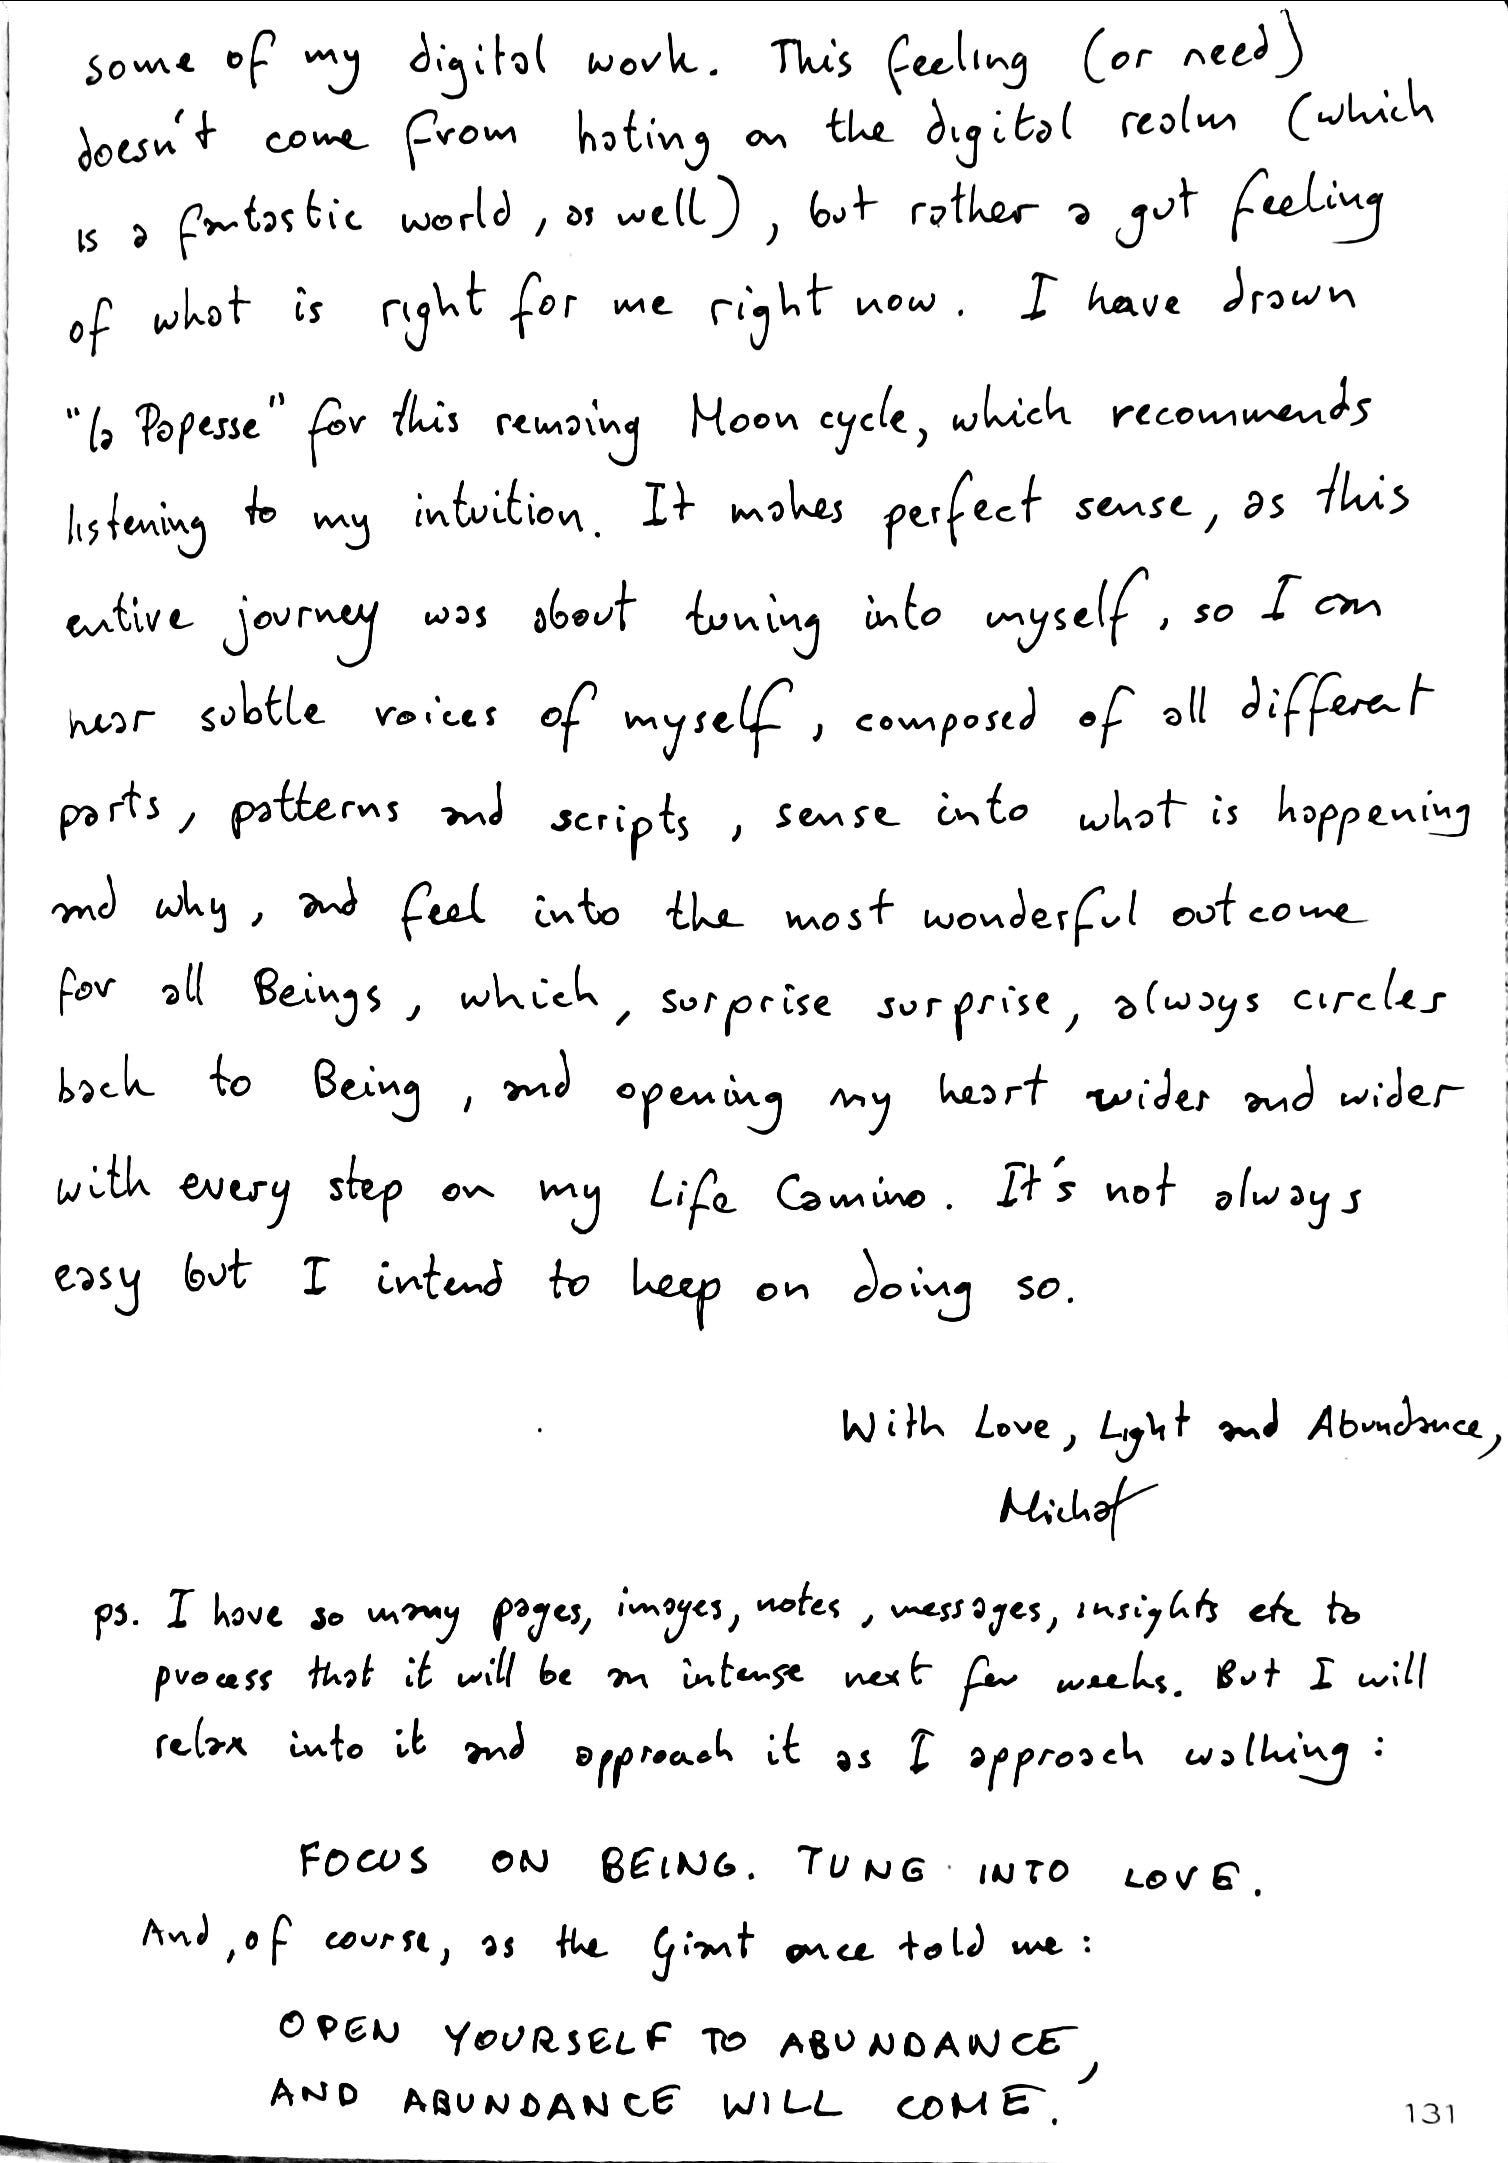 some of my digital work. This feeling (or need)
doesn't come from hating on the digital realm (which
is a fantastic world, as well), but rather a gut feeling
of what is right for me right now. I have drawn
"la Papesse" for this remaing Moon cycle, which recommends
listening to my intuition. It makes perfect sense, as this
entire journey was about tuning into myself, so I can
hear subtle voices of myself, composed of all different
parts, patterns and scripts, sense into what is happening
and why, and feel into the most wonderful outcome
for all Beings, which, surprise surprise, always circles
back to Being, and opening my heart wider and wider
with every step on my Life Camino. It's not always
easy but I intend to keep on doing so.
With Love, Light and Abundance,
Michał
ps. I have so many pages, images, notes, messages, insights etc to
process that it will be an intense next few weeks. But I will
relax into it and approach it as I approach walking:
FOCUS ON BEING. TUNE INTO LOVE.
And, of course, as the Giant once told me:
OPEN YOURSELF TO ABUNDANCE,
AND ABUNDANCE WILL COME.
131